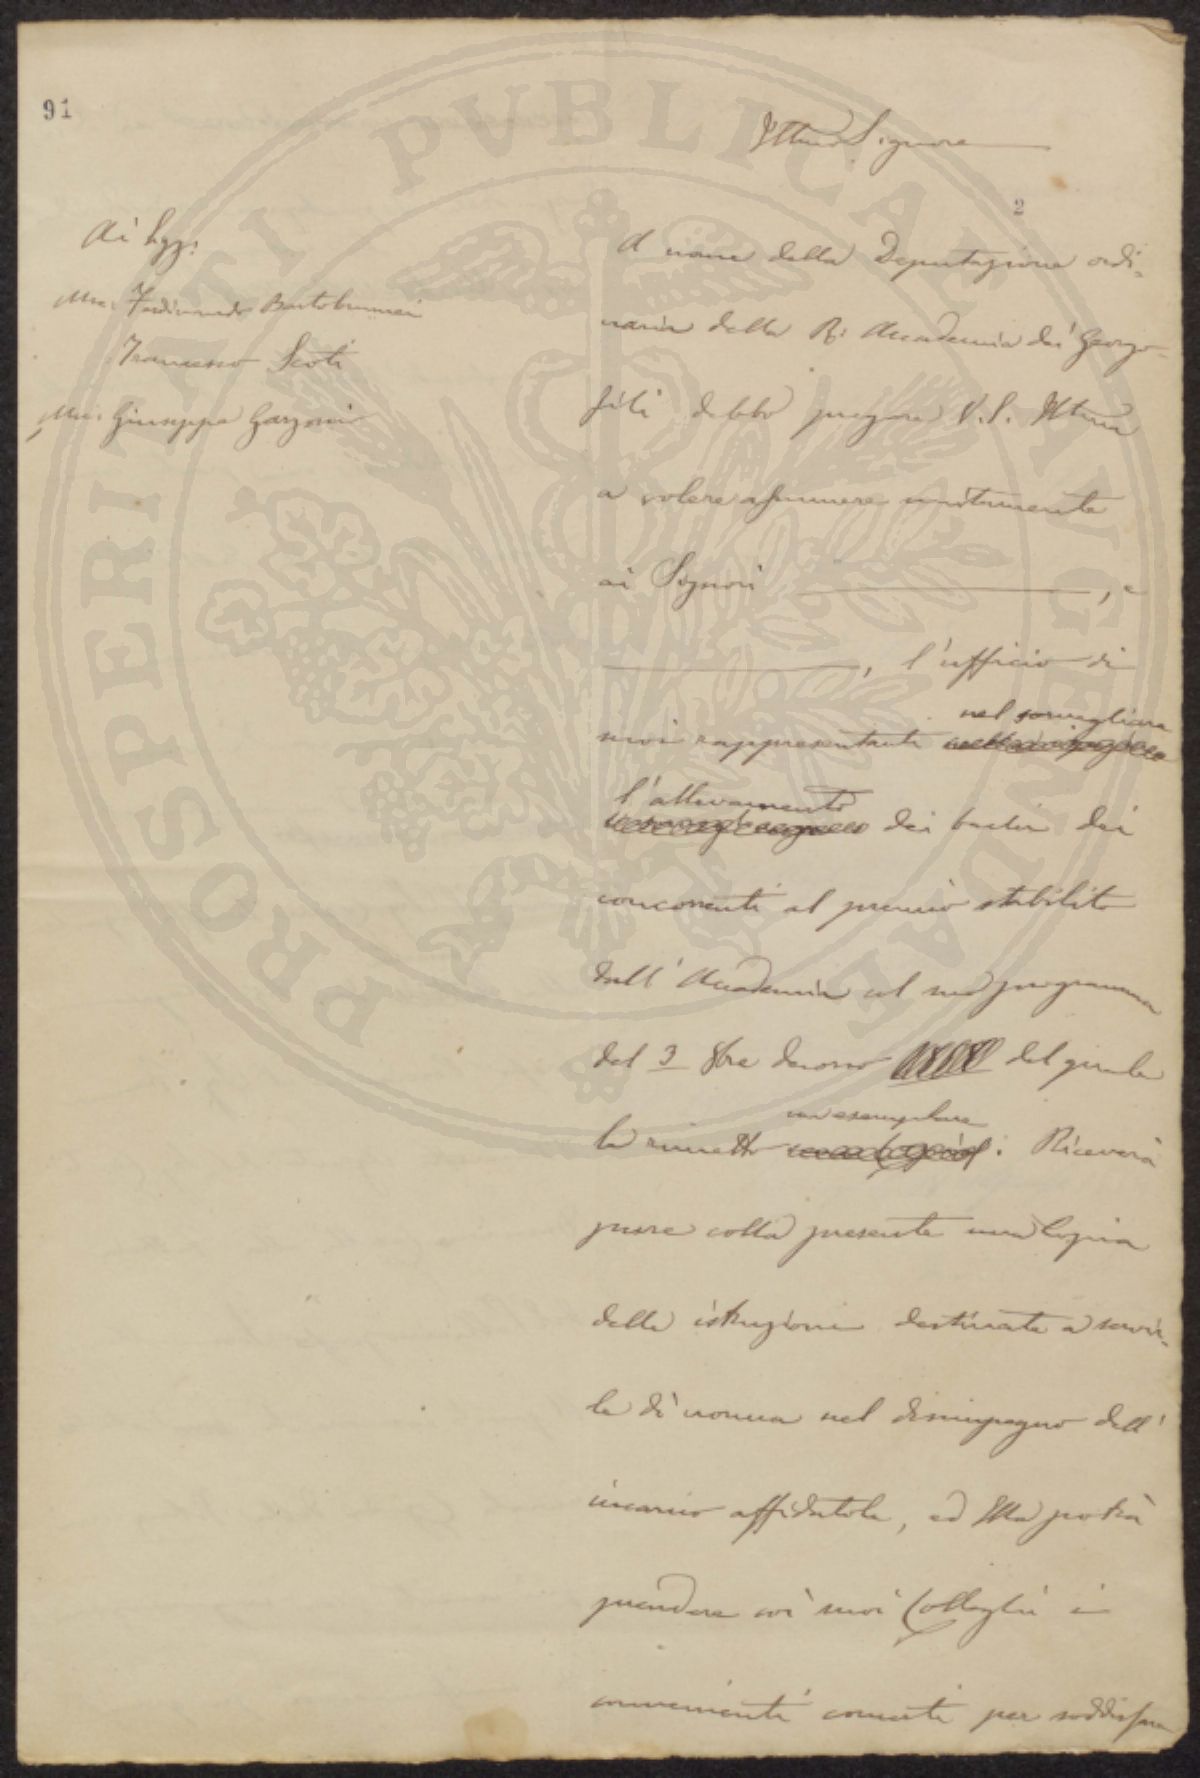 91
Illmo Signore
2
Ai Sigg:
Mse. Ferdinando Bartolommei
Francesco Scoti
Mse. Giuseppe Garzoni
A nome della Deputazione ordi-
naria della R: Accademia dei Georgo-
fili debbo pregare V.S. Illma
a volere assumere unitamente
ai Signori , e
, l'ufficio di
suoi rappresentanti nel sorvegliare
l'allevamento dei bachi dei
concorrenti al premio stabilito
dall'Accademia col suo programma
del 3 8bre decorso del quale
le rimetto un esemplare. Riceverà
pure colla presente una Copia
delle istruzioni destinate a servir-
le di norma nel disimpegno dell'
incarico affidatole, ed Ella potrà
prendere coi suoi Colleghi i
convenienti concerti per soddisfare
PROSPERITATI PVBLICAE AVGENDAE